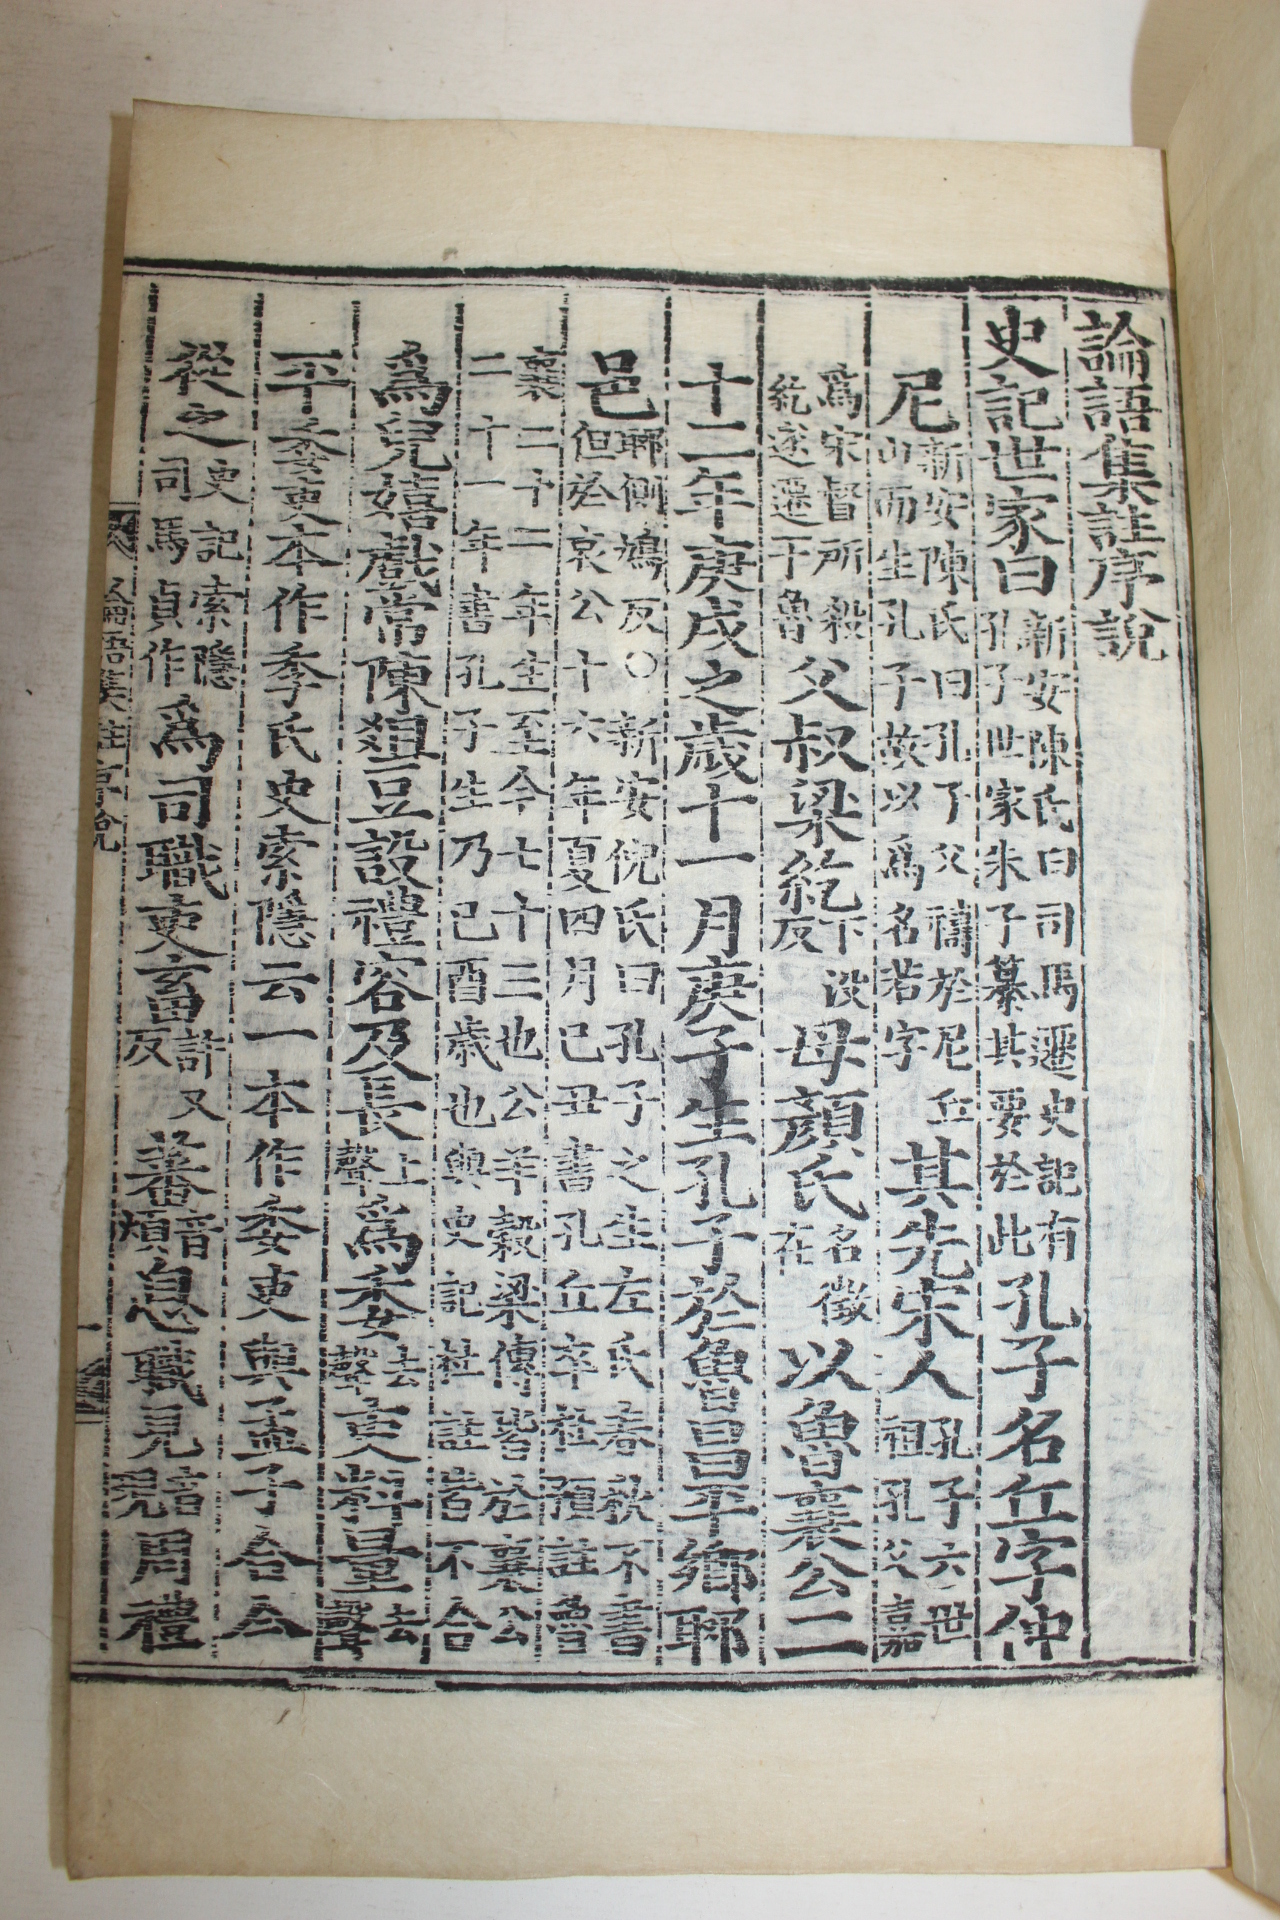 論語集註序說
史記世家曰新安陳氏曰司馬遷史記有孔子世家朱子纂其要於此孔子名丘字仲
尼新安陳氏曰孔子父禱於尼丘山而生孔子故以爲名若字其先宋人孔子六世祖孔父嘉
爲宋督所殺紇遂遷于魯父叔梁紇下沒反母顔氏名徵在以魯襄公二
十二年庚戌之歲十一月庚子生孔子於魯昌平鄕郰
邑郰側鳩反○新安倪氏曰孔子之生左氏春秋不書但於哀公十六年夏四月己丑書孔丘卒杜預註魯
襄二十二年生至今七十三也公羊穀梁傳皆於襄公二十一年書孔子生乃己酉歲也與史記杜註皆不合
爲兒嬉戲常陳俎豆設禮容及長上聲爲委去聲吏料量去聲
平委吏本作季氏史索隱云一本作委吏與孟子合今
從之史記索隱司馬貞作爲司職吏畜許又反蕃音煩息職見音現周禮
論語集註序說 一